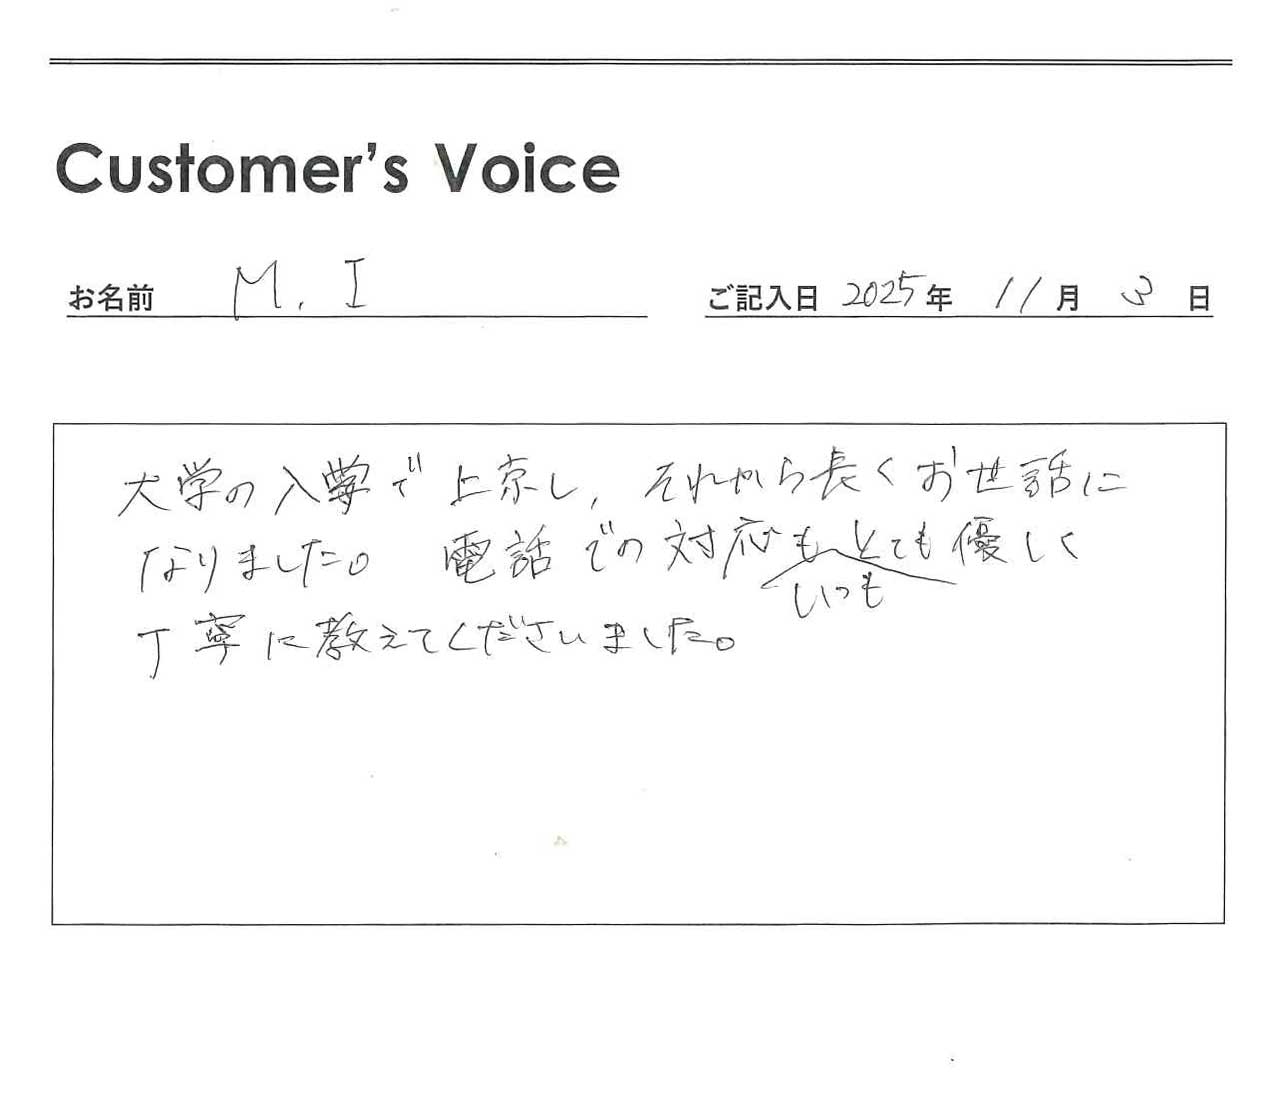 Customer's Voice
お名前 M. I
ご記入日 2025年 11月 3日
大学の入学で上京し、それから長くお世話に
なりました。電話での対応もとても優しく
いつも
丁寧に教えてくださいました。